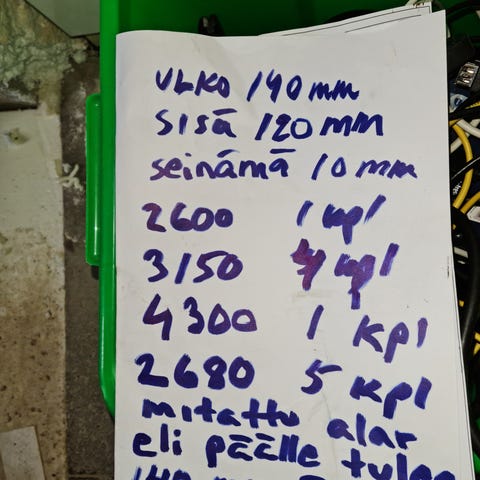 ULKO 140 mm
SISÄ 120 mm
seinämä 10 mm
2600 1 kpl
3150 4 kpl
4300 1 kpl
2680 5 kpl
mitattu alar
eli päälle tulee
140 mm